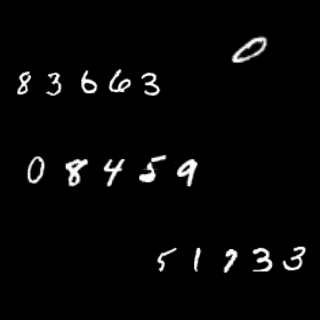 0
83663
08459
51733